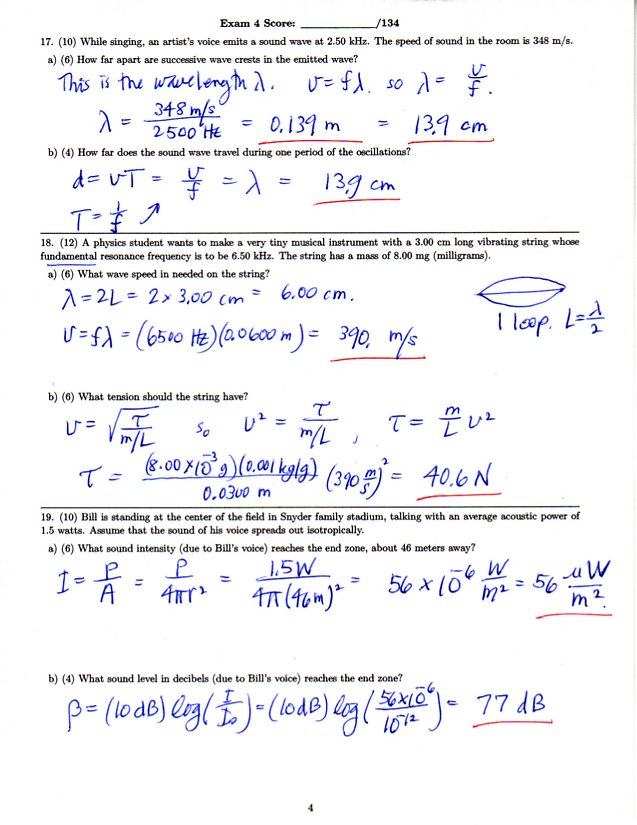 Exam 4 Score: ____________/134
17. (10) While singing, an artist's voice emits a sound wave at 2.50 kHz. The speed of sound in the room is 348 m/s.
a) (6) How far apart are successive wave crests in the emitted wave?
This is the wavelength λ. v=fλ. so λ = v/f.
λ = 348 m/s / 2500 Hz = 0.139 m = 13.9 cm
b) (4) How far does the sound wave travel during one period of the oscillations?
d = vT = v/f = λ = 13.9 cm
T = 1/f ↗
18. (12) A physics student wants to make a very tiny musical instrument with a 3.00 cm long vibrating string whose
fundamental resonance frequency is to be 6.50 kHz. The string has a mass of 8.00 mg (milligrams).
a) (6) What wave speed in needed on the string?
λ = 2L = 2 × 3.00 cm = 6.00 cm.
1 loop. L = λ/2
v = fλ = (6500 Hz)(0.0600 m) = 390. m/s
b) (6) What tension should the string have?
v = √(τ/(m/L)) so v² = τ/(m/L), τ = m/L v²
τ = (8.00×10⁻³ g)(0.001 kg/g) / 0.0300 m (390 m/s)² = 40.6 N
19. (10) Bill is standing at the center of the field in Snyder family stadium, talking with an average acoustic power of
1.5 watts. Assume that the sound of his voice spreads out isotropically.
a) (6) What sound intensity (due to Bill's voice) reaches the end zone, about 46 meters away?
I = P/A = P/4πr² = 1.5W/4π(46m)² = 56 × 10⁻⁶ W/m² = 56 μW/m².
b) (4) What sound level in decibels (due to Bill's voice) reaches the end zone?
β = (10dB) log(I/I₀) = (10dB) log(56×10⁻⁶/10⁻¹²) = 77 dB
4